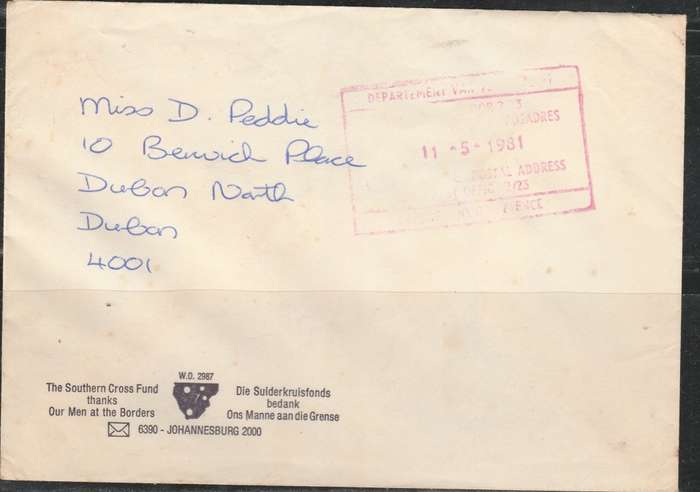 Miss D. Peddie
10 Berwick Place
Durban North
Durban
4001
DEPARTEMENT VAN
POSADRES
11 -5- 1981
POSTAL ADDRESS
3/25
W.O. 2987
The Southern Cross Fund
thanks
Our Men at the Borders
Die Suiderkruisfonds
bedank
Ons Manne aan die Grense
6390 - JOHANNESBURG 2000